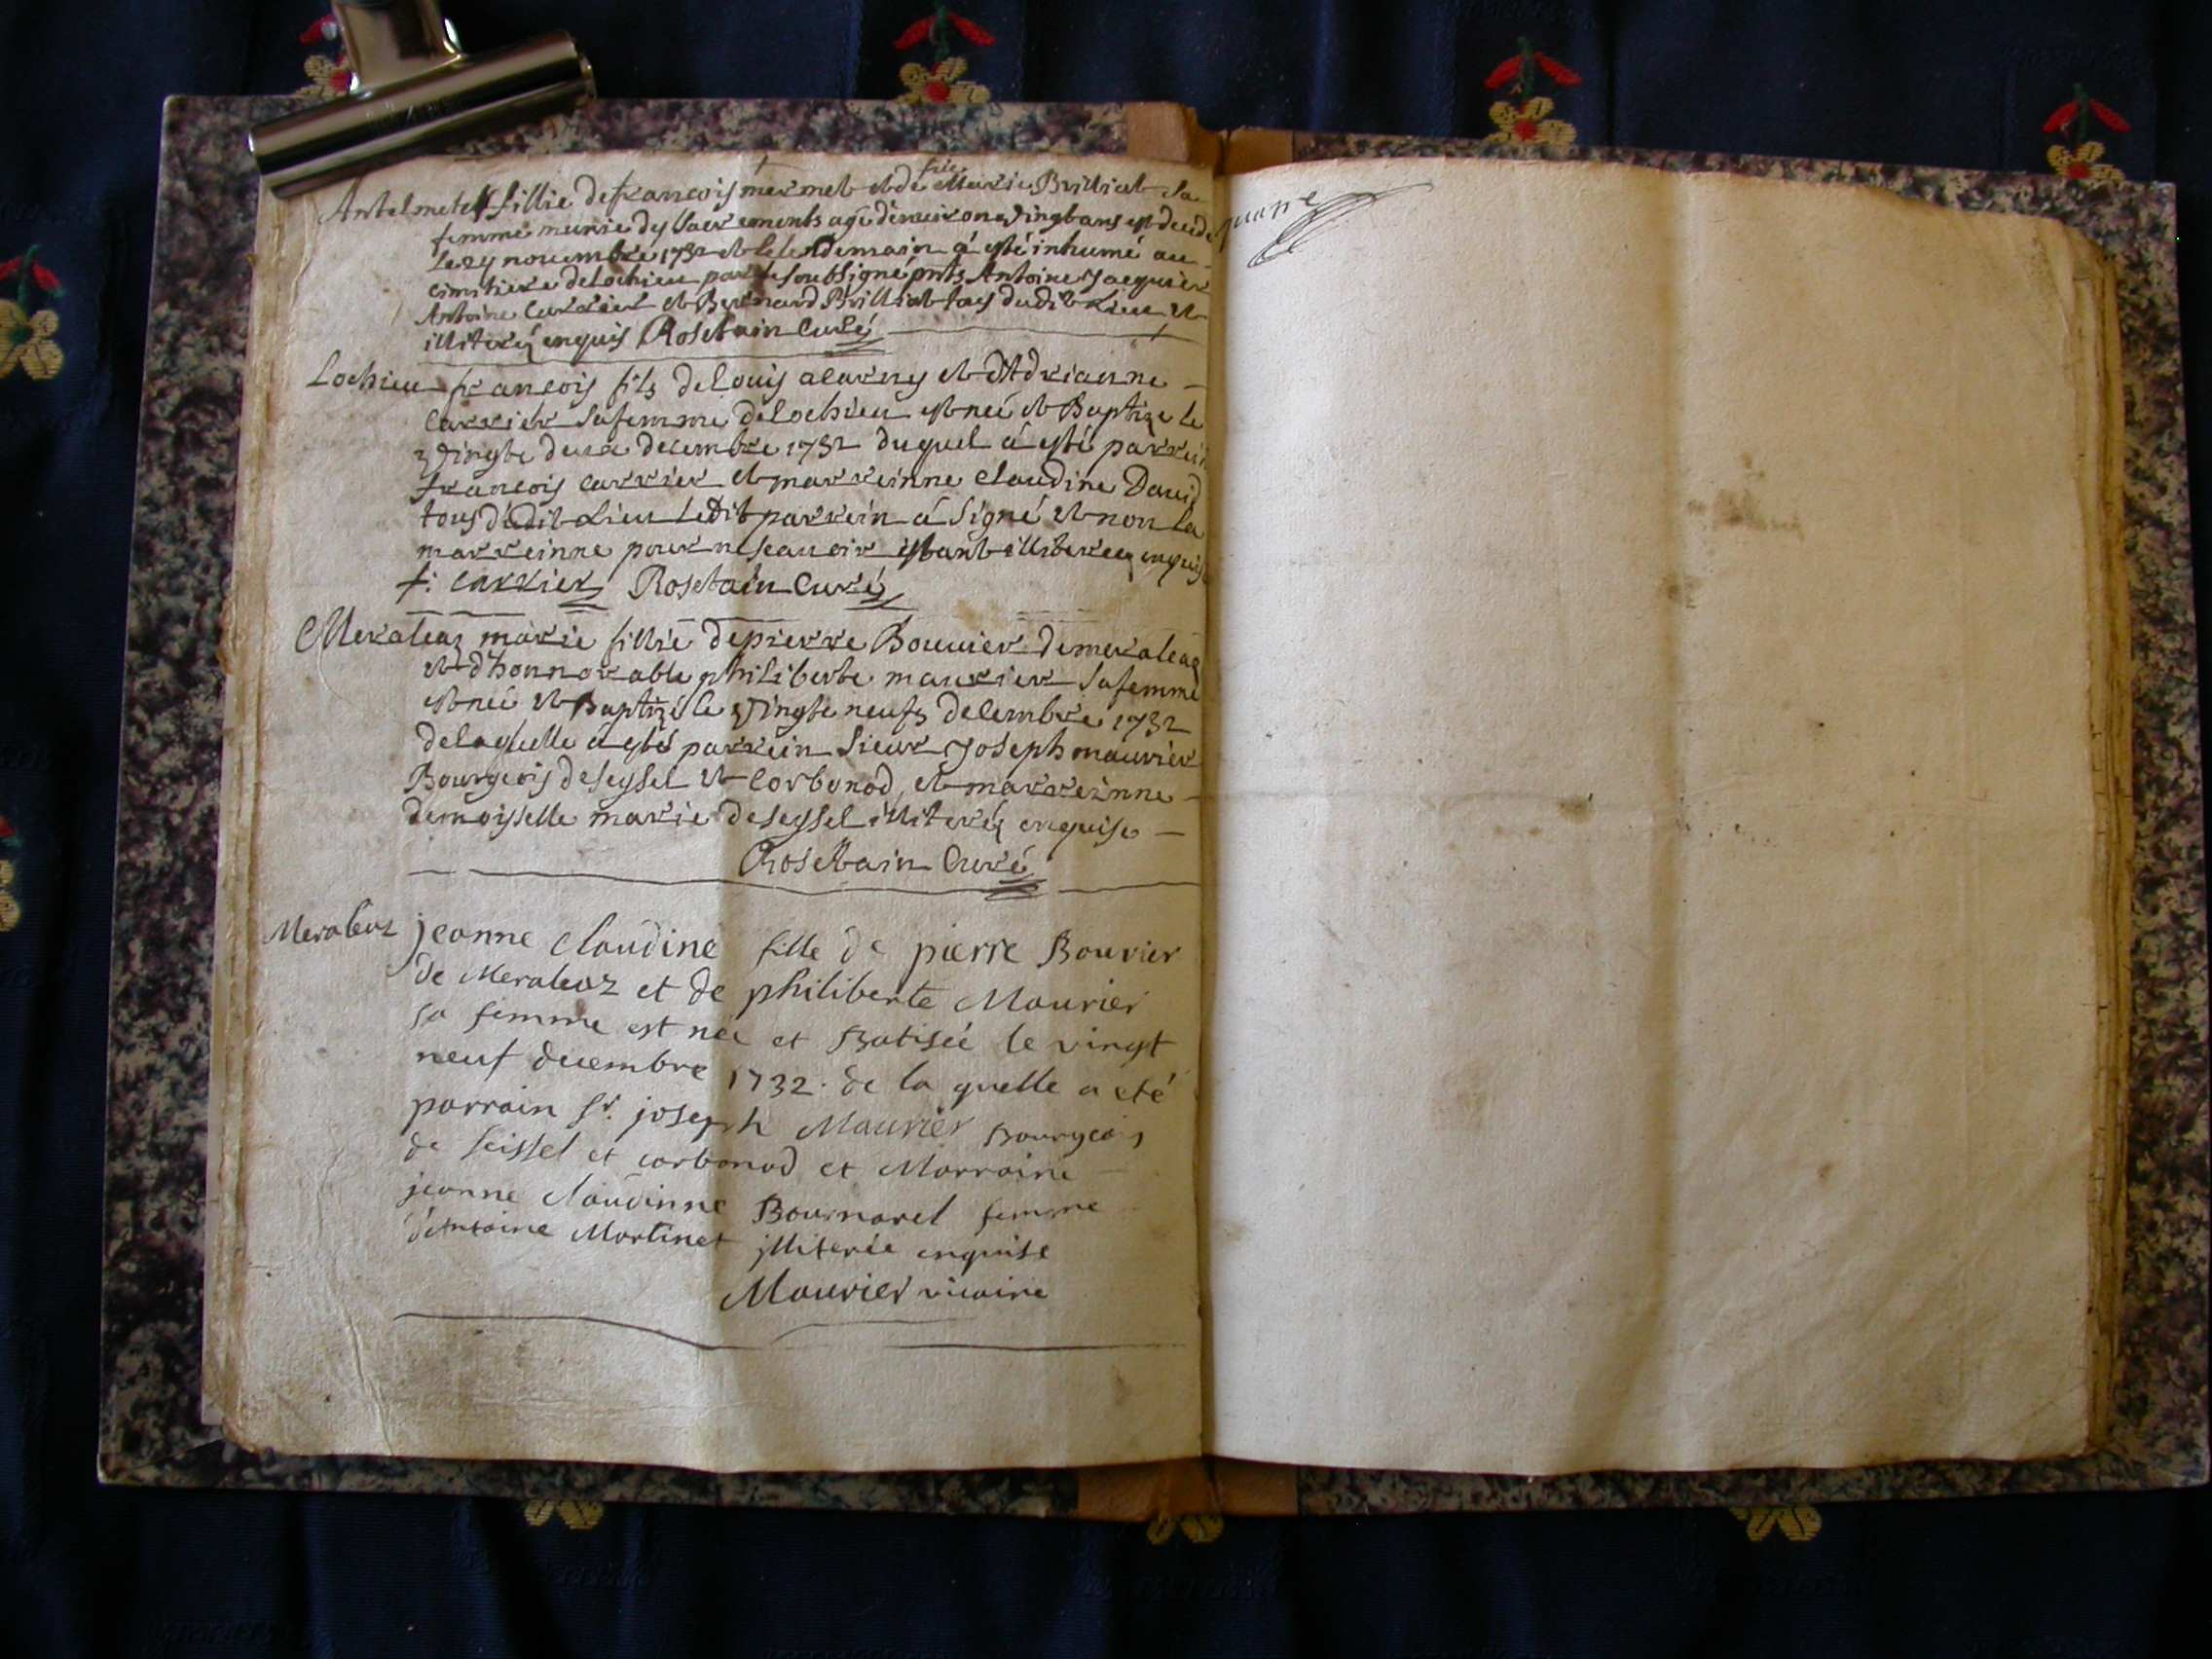 Antelmete fillie de francois mermet et de feüe Marie Brilliat sa
femme munie dy sacrements agé denuiron vingt ans est decede
le 29 nouembre 1732 et le lendemain á esté inhumé au
cimitiere de Lochieu par le soubsigné pnts Antoine Jacquier
Antoine Carrier et Bernard Brilliat tous dudit Lieu et
illiteréz enquis Rosetain Curé
Lochieu francois fils de Louis acarry et d'Adrianne
Carrier sa femme de Lochieu est neé et Baptize le
vingte deux decembre 1732 duquel á esté parrein
francois carrier et marreinne claudine Dauid
tous dudit Lieu ledit parrein á signé et non la
marreinne pour ne scauoir estant illiteree enquise
f: carrier Rosetain Curé
Meraleaz marie fillie de pierre Bouuier de meraleaz
et d'honnorable philiberte maurier sa femme
est neé et Baptizé le vingte neufz decembre 1732
de laquelle a esté parrein sieur Joseph maurier
Bourgeois de seyssel et Corbonod, et marreinne
demoisselle marie de seyssel illiteréz enquise
Rosetain Curé
Meraleaz jeanne claudine fille de pierre Bouvier
de Meraleaz et de philiberte Maurier
sa femme est née et Batisée le vingt
neuf decembre 1732. de la quelle a eté
parrain Sr. joseph Maurier Bourgeois
de seissel et corbonod et Marraine
jeanne claudinne Bournarel femme
d'Antoine Martinet illiterée enquise
Maurier vicaire